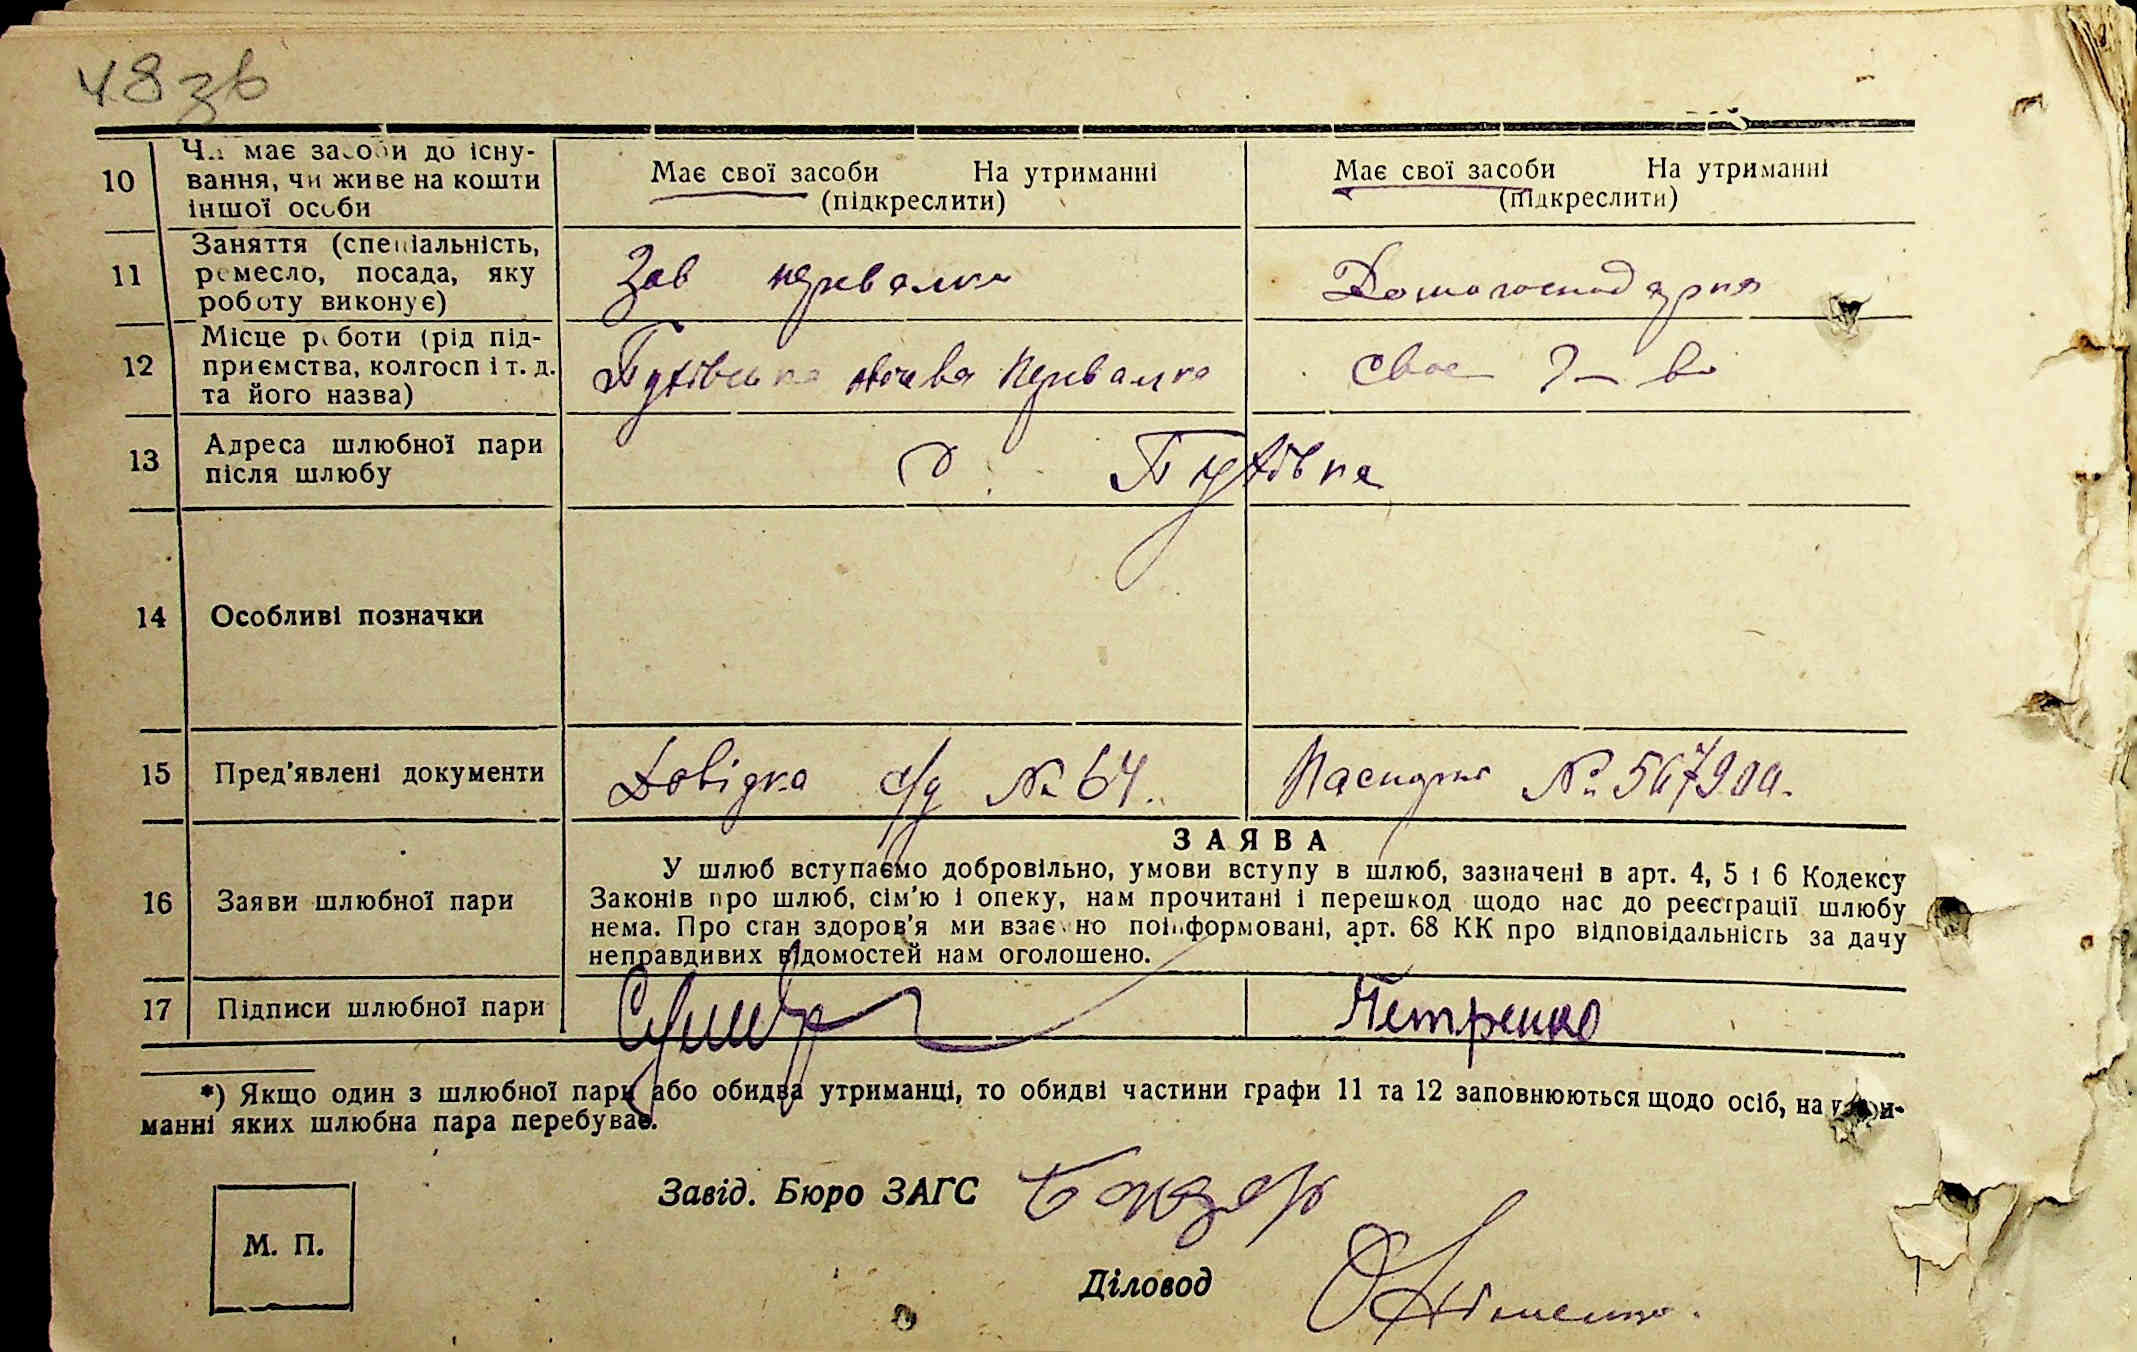 48 зв
10 Чи має засоби до існу-
вання, чи живе на кошти
іншої особи
Має свої засоби На утриманні
(підкреслити)
Має свої засоби На утриманні
(підкреслити)
11 Заняття (спеціальність,
ремесло, посада, яку
роботу виконує)
Зав перевалки
Домогосподарка
12 Місце роботи (рід під-
приємства, колгосп і т. д.
та його назва)
Пухівська перевалка
своє г-во
13 Адреса шлюбної пари
після шлюбу
с. Пухівка
14 Особливі позначки
15 Пред'явлені документи
Довідка с/р № 64.
Паспорт №
16 Заяви шлюбної пари
ЗАЯВА
У шлюб вступаємо добровільно, умови вступу в шлюб, зазначені в арт. 4, 5 і 6 Кодексу
Законів про шлюб, сім'ю і опеку, нам прочитані і перешкод щодо нас до реєстрації шлюбу
нема. Про стан здоров'я ми взаємно поінформовані, арт. 68 КК про відповідальність за дачу
неправдивих відомостей нам оголошено.
17 Підписи шлюбної пари
Петренко
*) Якщо один з шлюбної пари або обидва утриманці, то обидві частини графи 11 та 12 заповнюються щодо осіб, на утри-
манні яких шлюбна пара перебуває.
Завід. Бюро ЗАГС
М. П.
Діловод